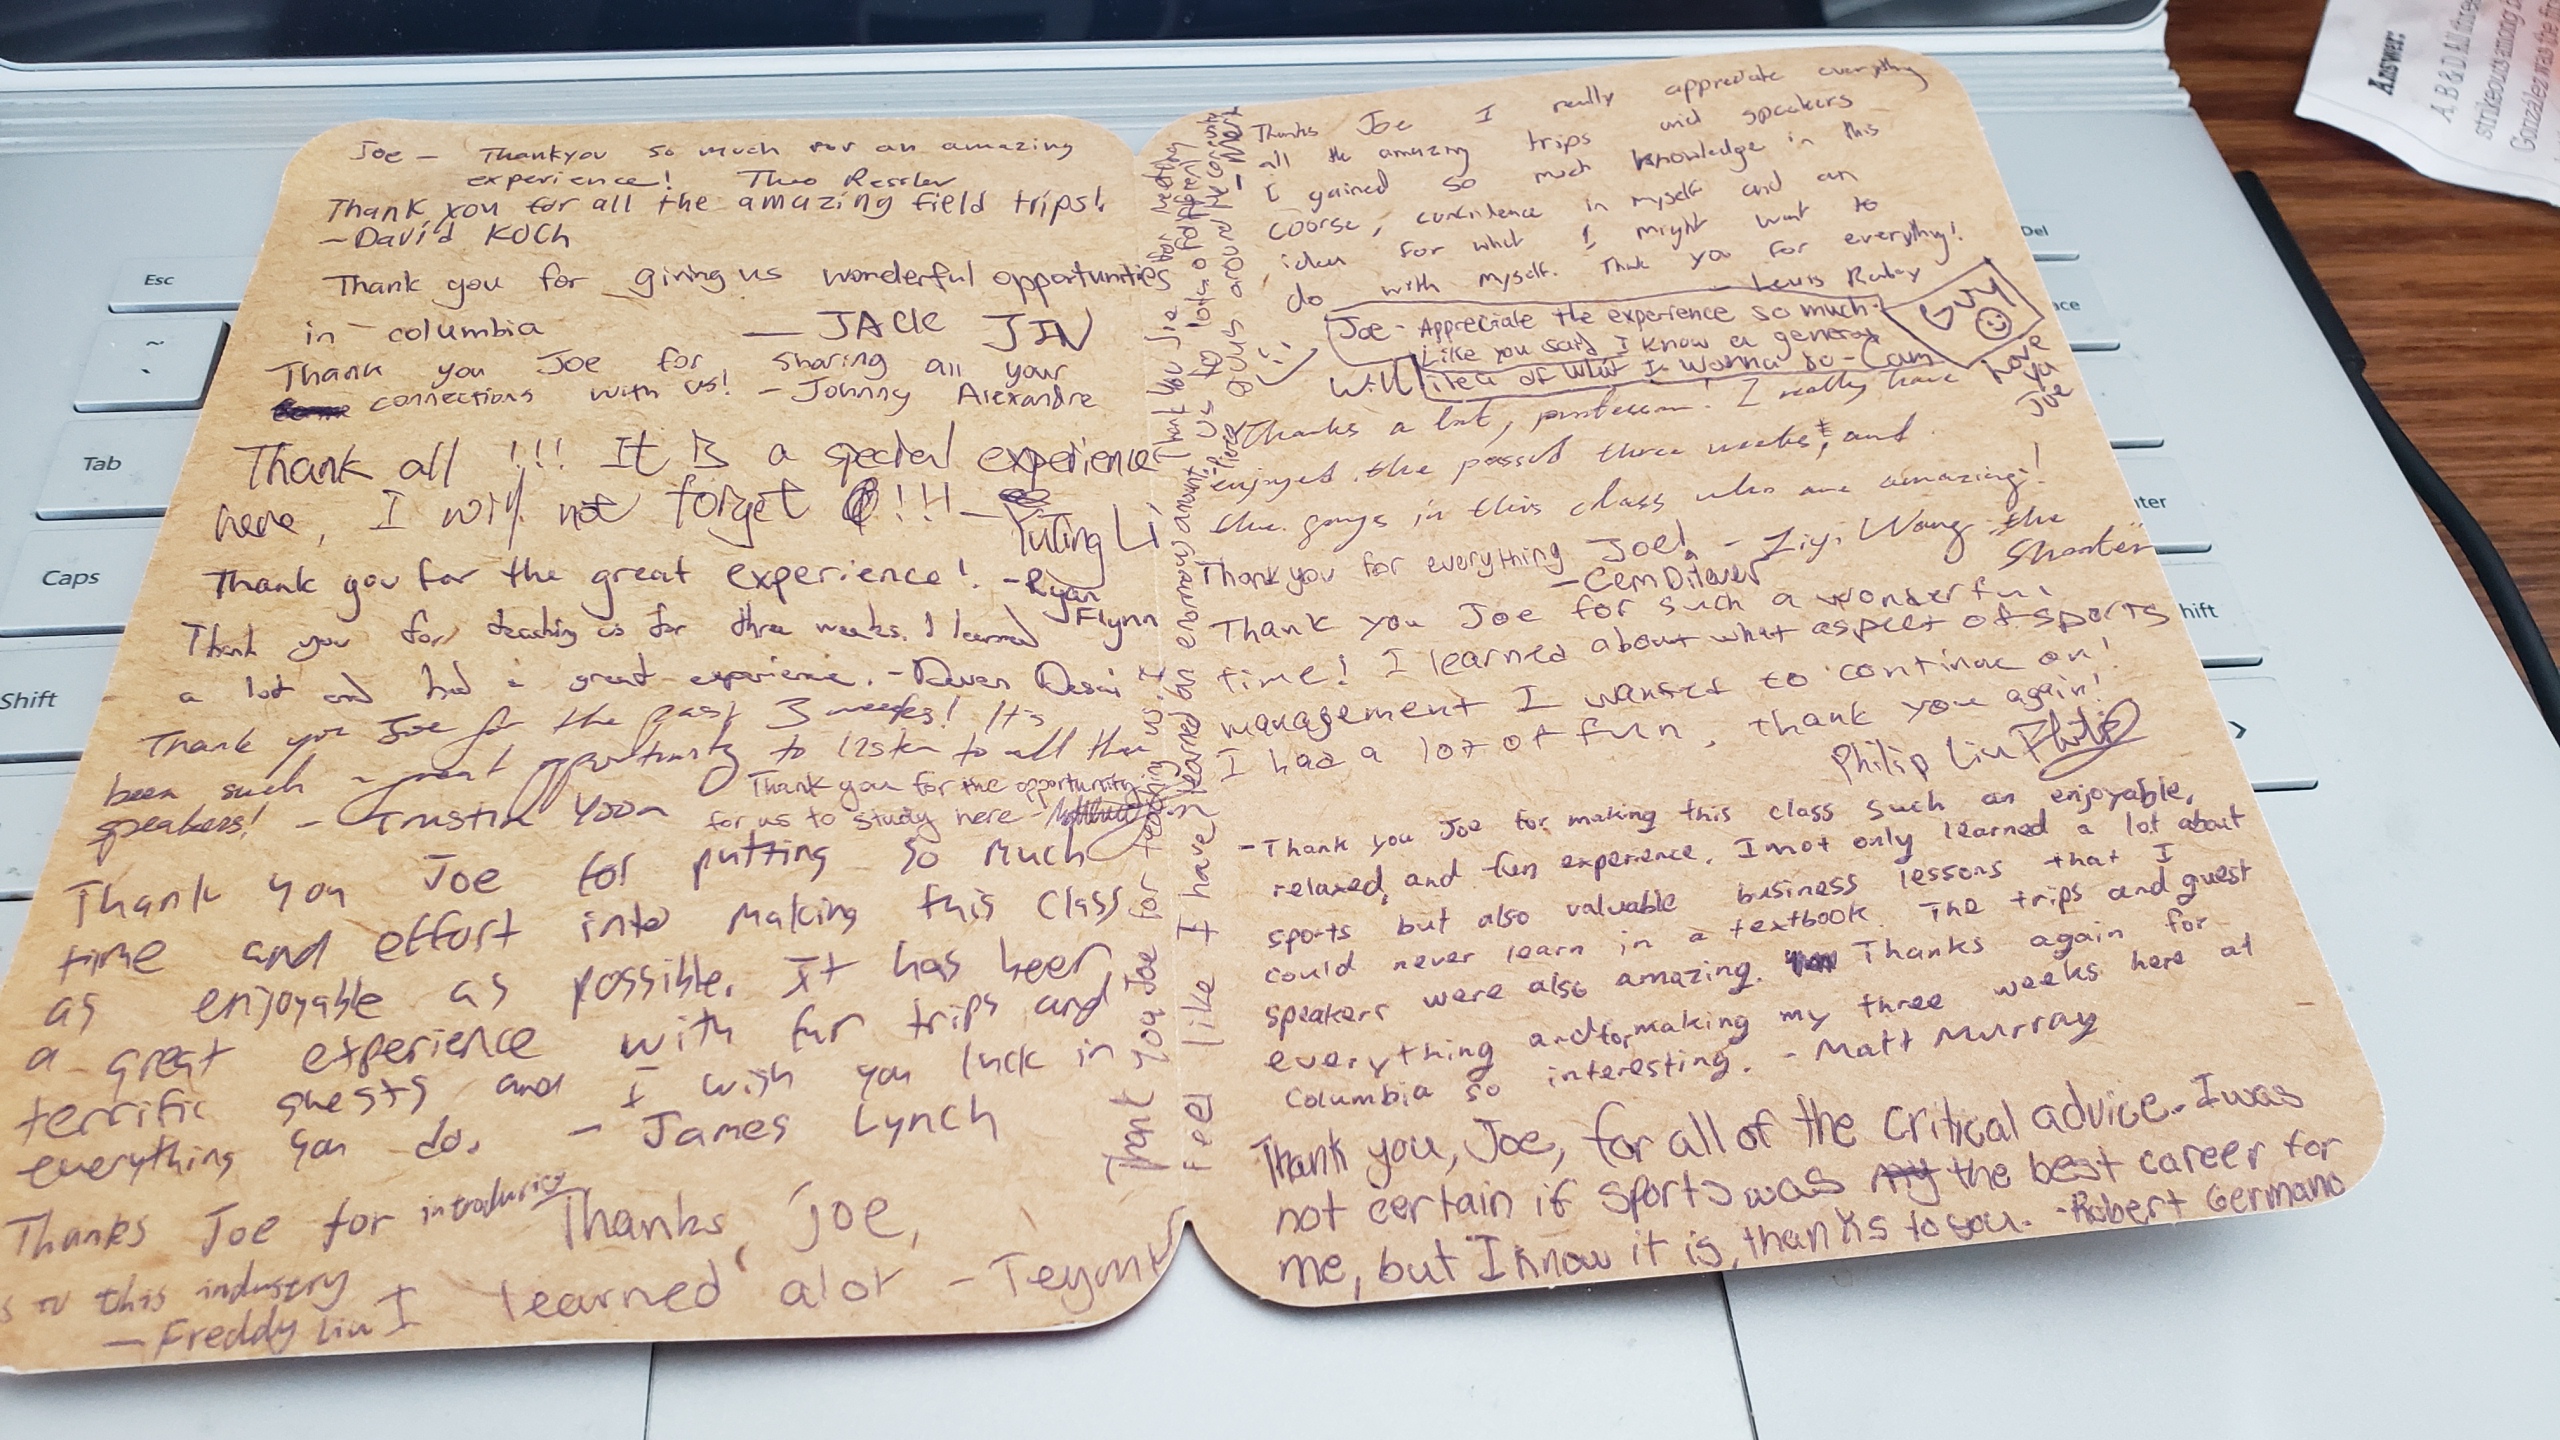 Joe - Thankyou so much for an amazing
experience! Theo Ressler
Thank you for all the amazing field trips!
- David Koch
Thank you for giving us wonderful opportunities
in columbia - JACK JIN
Thank you Joe for sharing all your
connections with us! - Johnny Alexandre
Thank all !!! It is a special experience
here, I will not forget !!! -
Yuting Li
Thank you for the great experience! - Ryan
Flynn
Thank you for teaching us for three weeks. I learned
a lot and had a great experience. - Deven Desai
Thank you Joe for the past 3 weeks! It's
been such a great opportunity to listen to all the
speakers! - Yoon
Thank you for the opportunity
for us to study here -
Thank you Joe for putting so much
time and effort into making this class
as enjoyable as possible. It has been
a great experience with fun trips and
terrific guests and I wish you luck in
everything you do. - James Lynch
Thanks Joe for introducing
us to this industry
- Freddy Liu
Thanks, Joe,
I learned alot -
Thank you Joe for teaching us. I
feel like I have learned an enormous amount.
Thank you Joe for
Thanks Joe I really appreciate everything
all the amazing trips and speakers
I gained so much knowledge in this
coorse, confidence in myself and an
idea for what I might want to
do with myself. Thank you for everything!
- Lewis
Joe - Appreciate the experience so much.
Like you said I know a general
idea of what I wanna do - Cam
Will
GUY
Love
ya
Joe
Thanks a lot, professor! I really have
enjoyed the passed three weeks, and
the guys in this class who are amazing!
- Ziyi Wang the
Shooter
Thank you for everything Joe!
- Cem
Thank you Joe for such a wonderful
time! I learned about what aspect of sports
management I wanted to continue on!
I had a lot of fun, thank you again!
Philip Liu Philip
- Thank you Joe for making this class such an enjoyable,
relaxed, and fun experience. I not only learned a lot about
sports but also valuable business lessons that I
could never learn in a textbook. The trips and guest
speakers were also amazing. Thanks again for
everything and for making my three weeks here at
Columbia so interesting. - Matt Murray
Thank you, Joe, for all of the critical advice. I was
not certain if sports was the best career for
me, but I know it is, thanks to you. - Robert Germano
Esc
~
Tab
Caps
Shift
Del
Answer:
A B & D. All three
strikeouts among
Gonzalez was the